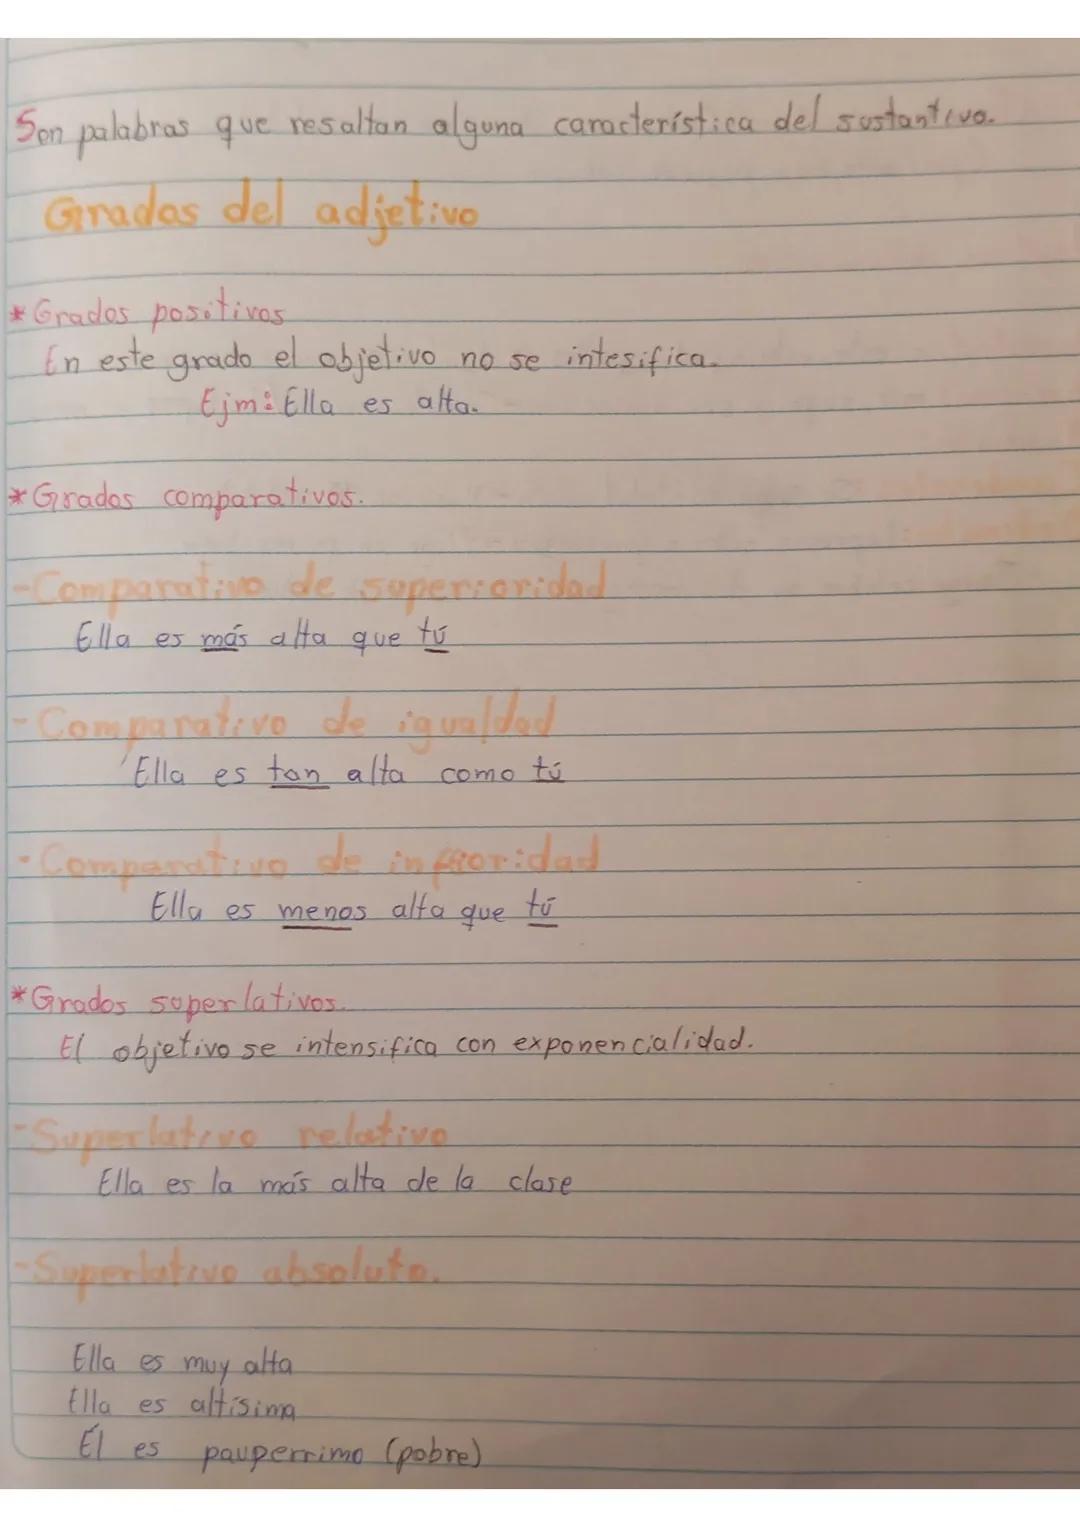 Son palabras que resaltan alguna característica del sustantivo.
Grados del adjetivo
* Grados positivos
En este grado el objetivo no se intesifica.
Ejm: Ella es alta.
* Grados comparativos.
- Comparativo de superioridad
Ella es más alta que tú
- Comparativo de igualdad
Ella es tan alta como tú
- Comparativo de inferioridad
Ella es menos alta que tú
* Grados superlativos.
El objetivo se intensifica con exponencialidad.
- Superlativo relativo
Ella es la más alta de la clase
- Superlativo absoluto.
Ella es muy alta
Ella es altísima
Él es pauperrimo (pobre)